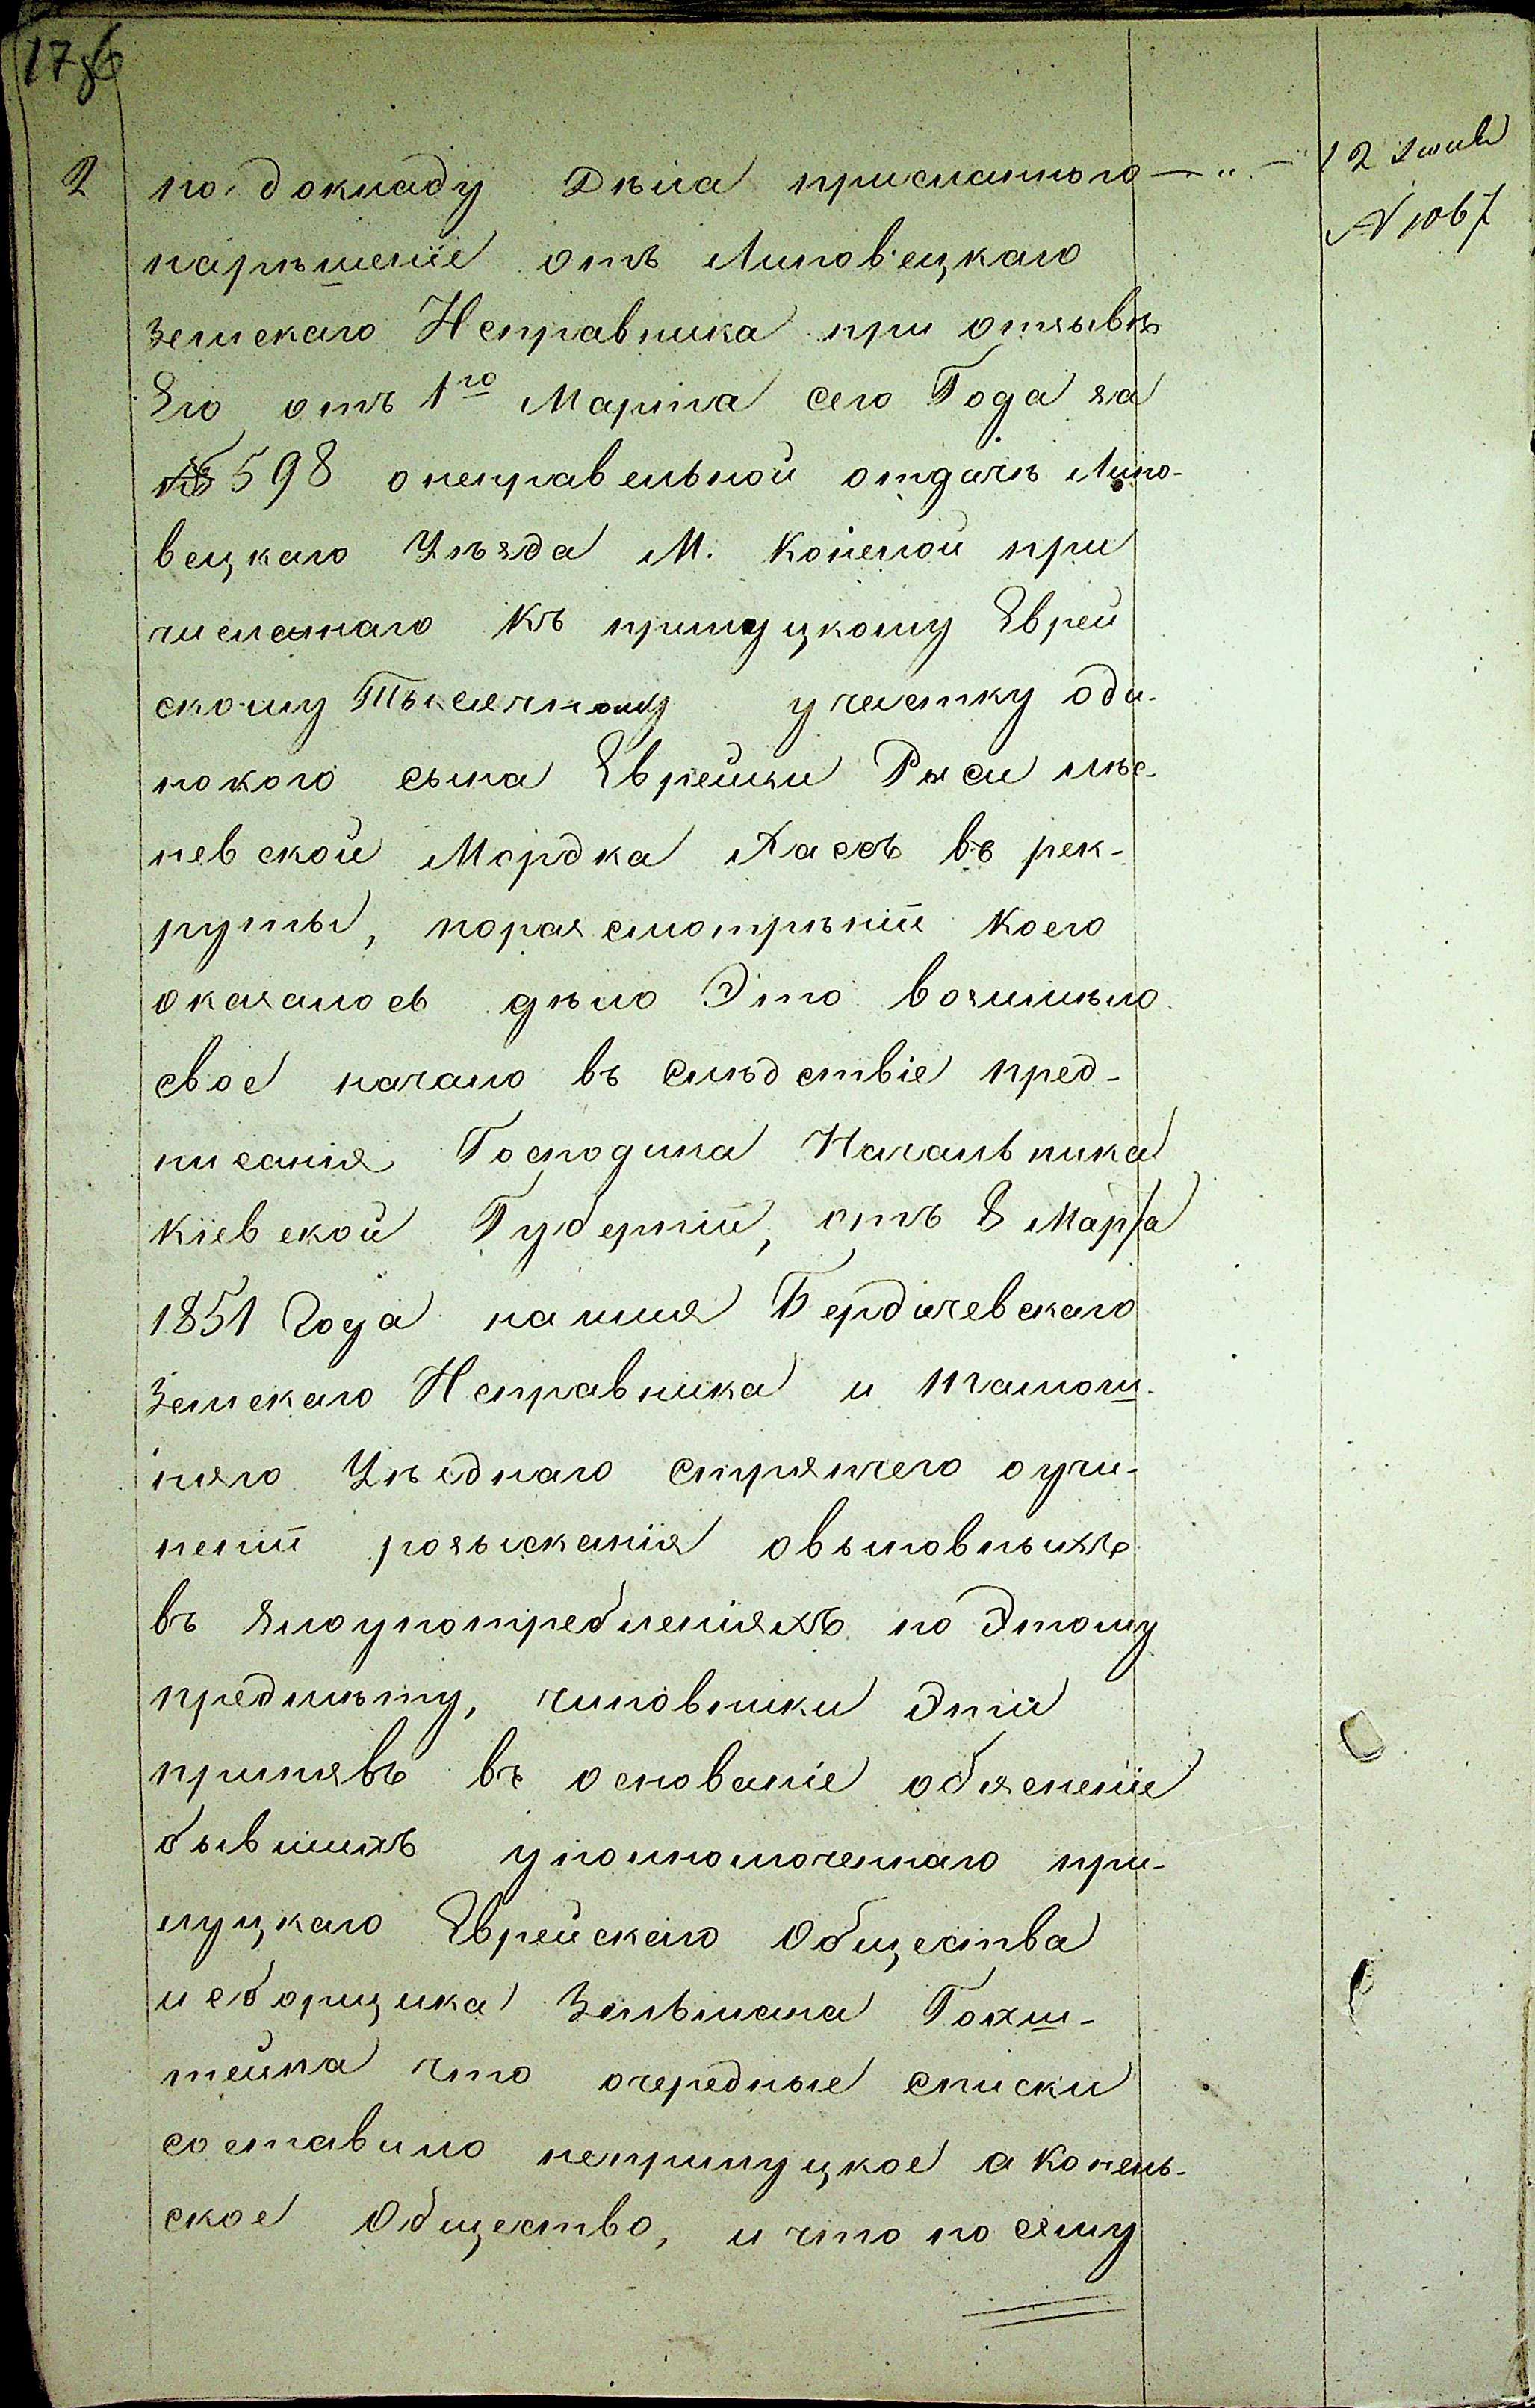 17об
2 по докладу Дѣла присланного — „ — 12 Июня
№ 1067
нарѣшеніе отъ Липовецкаго
Земскаго Исправника при отзывѣ
Его отъ 1го Марта сего Года за
№ 598 онеправельной отдачѣ Липо-
вецкаго Уѣзда М. Конелой при
численнаго Къ прилуцкому Еврей
скому Тысячному участку оди-
нокого сына Еврейки Рыси
невской Мордка въ рек-
руты, поразсмотрѣніи Коего
оказалось дѣло Это возимѣло
свое начало въ слѣдствіе пред-
писанія Господина Начальника
Кіевской Губерніи, отъ 8 Марта
1851 Года на имя Бердичевскаго
Земскаго Исправника и тамош-
няго Уѣзднаго стряпчего оучи-
неніи розысканія овыновныхъ
въ злоупотребленіяхъ по Этому
предмѣту, чиновники Эти
принявъ въ основаніе обясненіе
бывшихъ уполномоченнаго при-
луцкаго Еврейскаго Общества
и сборщика Зельмана Гохш-
тейна что очередные списки
составило неприлуцкое а Конель-
ское Общество, и что по сему